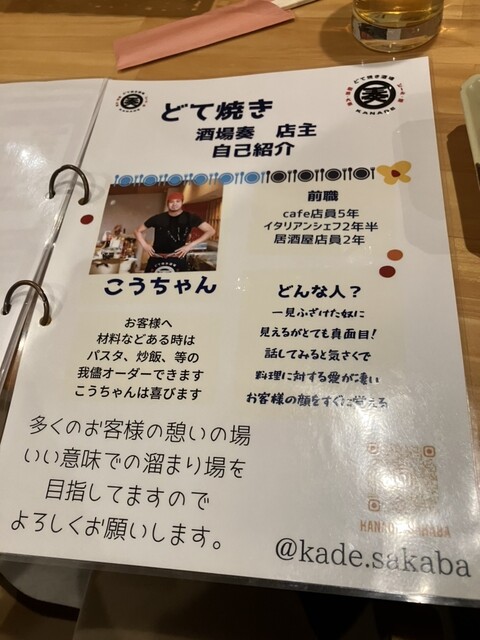 どて焼き
酒場奏 店主
自己紹介
奏
KANADE
前職
cafe店員5年
イタリアンシェフ2年半
居酒屋店員2年
こうちゃん
どんな人？
一見ふざけた奴に
見えるがとても真面目！
話してみると気さくで
料理に対する愛が凄い
お客様の顔をすぐに覚える
お客様へ
材料などある時は
パスタ、炒飯、等の
我儘オーダーできます
こうちゃんは喜びます
多くのお客様の憩いの場
いい意味での溜まり場を
目指してますので
よろしくお願いします。
@kade.sakaba